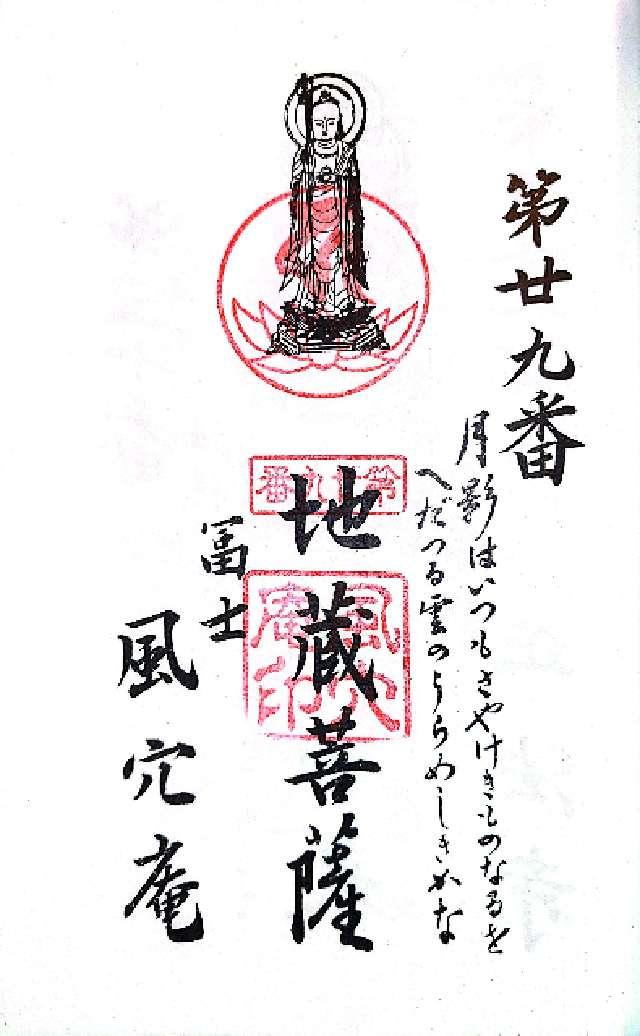 第廿九番
月影はいつもさやけきものなるを
へだつる雲のうらめしきかな
第廿九番
地蔵菩薩
風穴庵印
冨士
風穴庵